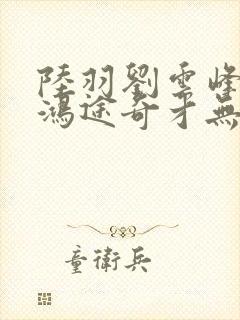 陸羽劉雲峰
鴻途奇才無
童衛兵